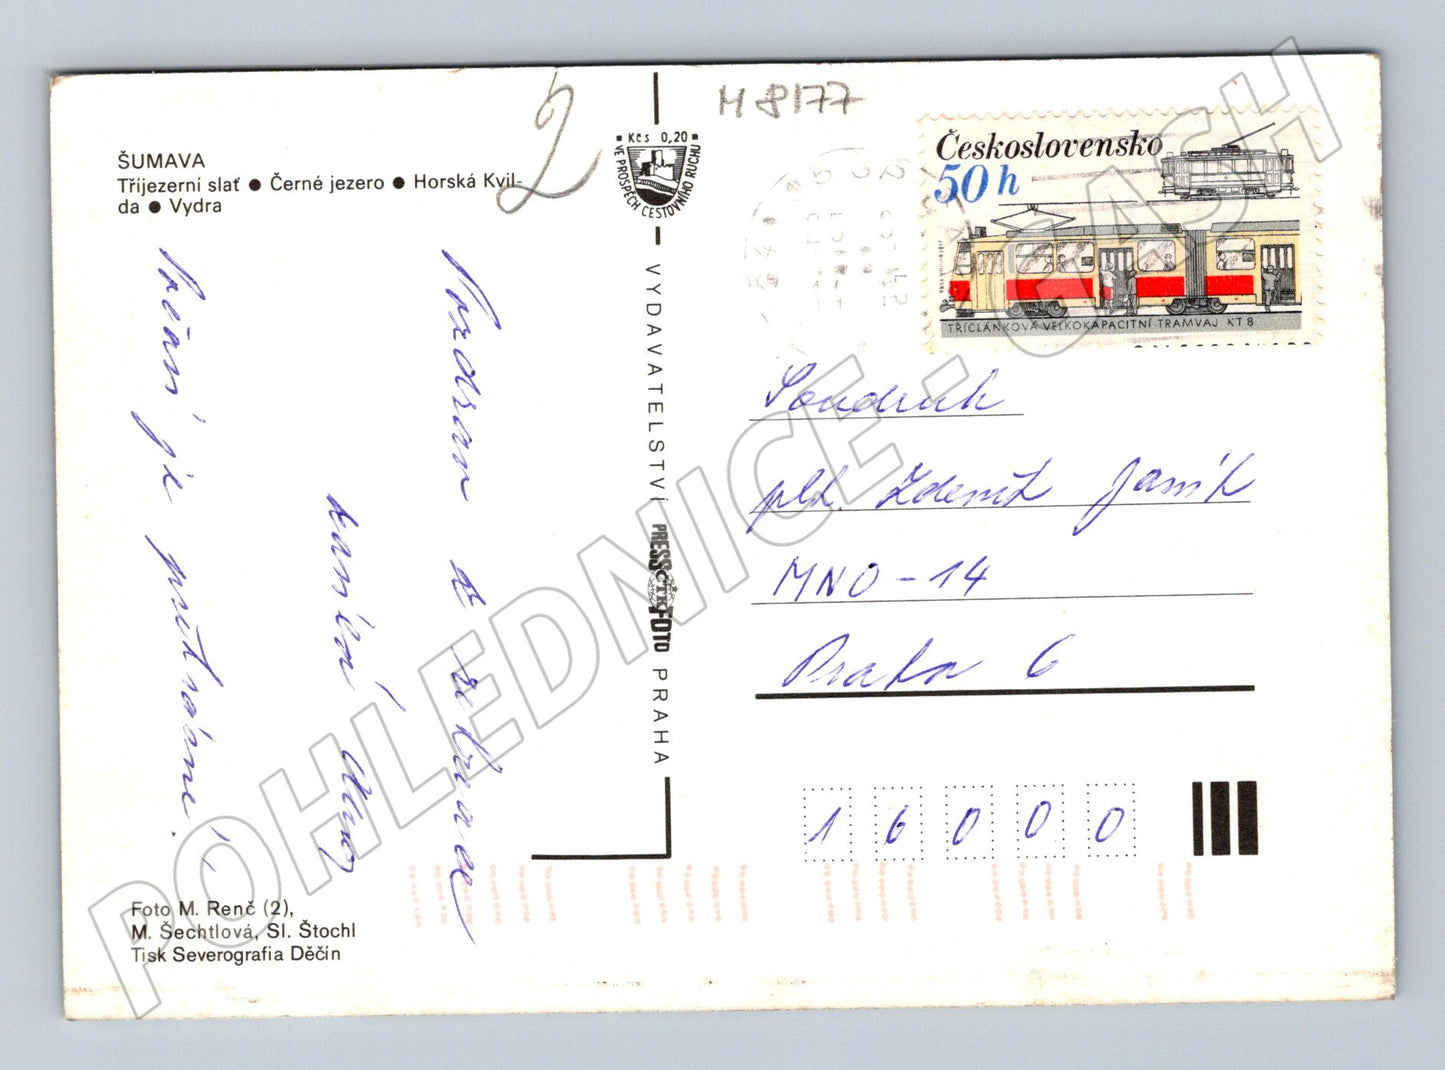 M 8177
2
ŠUMAVA
Tříjezerní slať ● Černé jezero ● Horská Kvil-
da ● Vydra
Kčs 0,20
VE PROSPĚCH CESTOVNÍHO RUCHU
Československo
50 h
TŘÍČLÁNKOVÁ VELKOKAPACITNÍ TRAMVAJ KT 8
Pozdrav ze
je
VYDAVATELSTVÍ PRESSFOTO PRAHA
ČTK
Soudruh
plk. Zdeněk Janík
MNO - 14
Praha 6
1 6 0 0 0
Foto M. Renč (2),
M. Šechtlová, Sl. Štochl
Tisk Severografia Děčín
POHLEDNICE - GASH